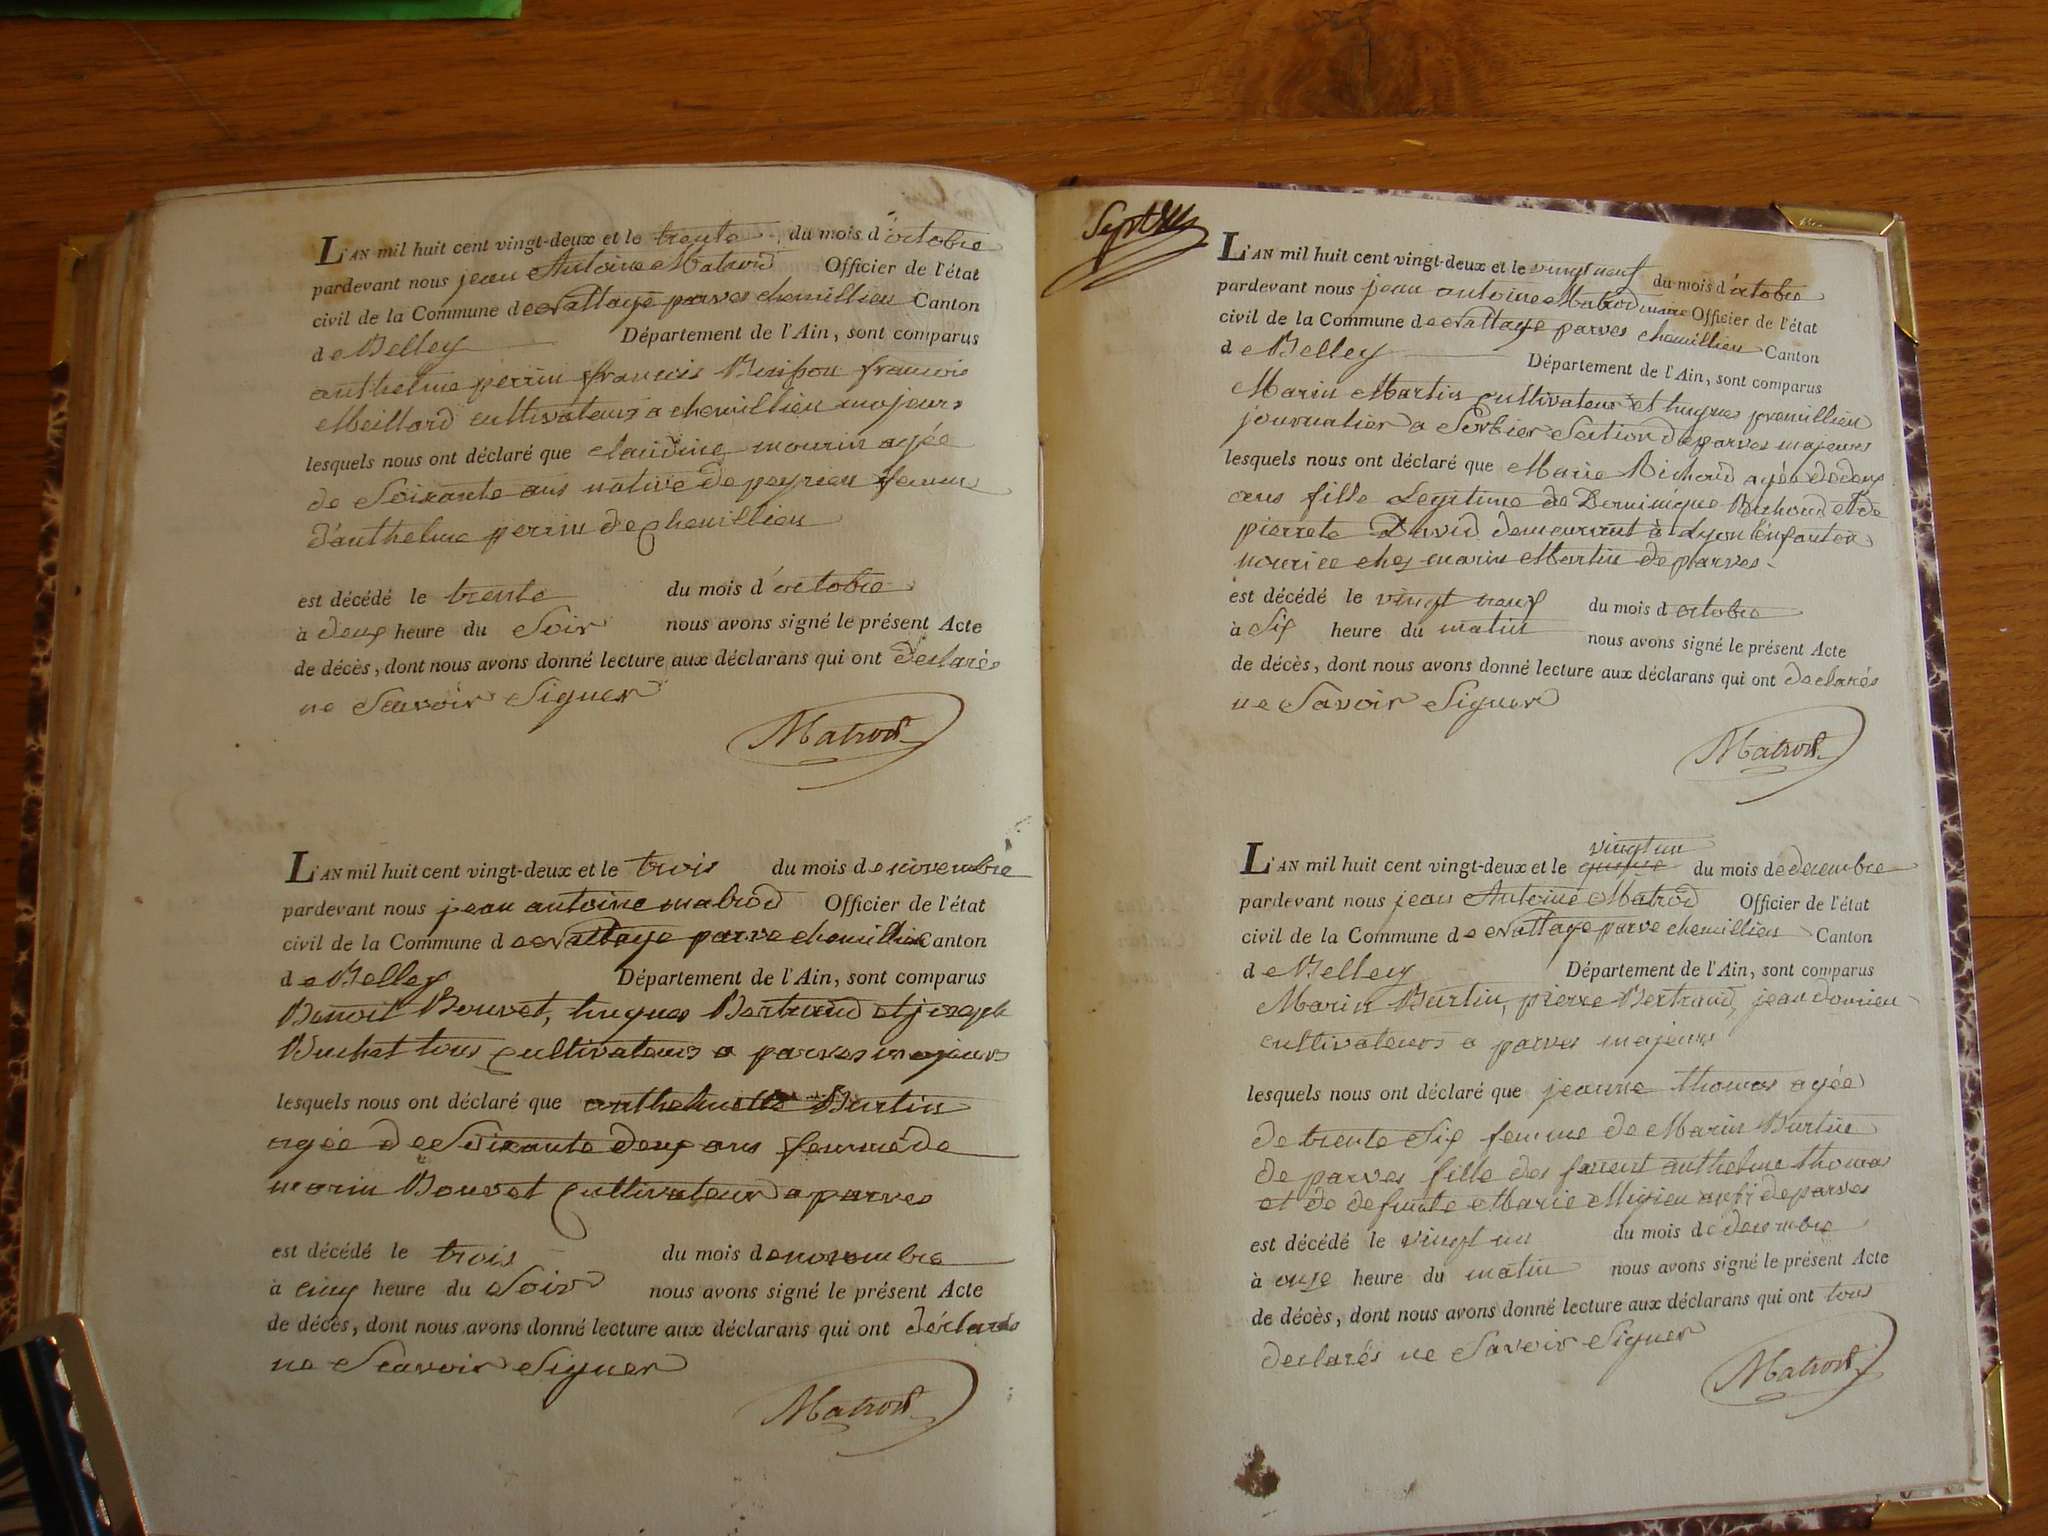 L'AN mil huit cent vingt-deux et le trente du mois d'octobre
pardevant nous jean Antoine Matrod Officier de l'état
civil de la Commune de Nattage parves chemillieu Canton
de Belley Département de l'Ain, sont comparus
anthelme perrin françois françois
Meillard cultivateurs a chemillieu majeurs
lesquels nous ont déclaré que claudine mourin agée
de Soixante ans native de peyrieu femme
d'anthelme perrin de chemillieu
est décédé le trente du mois d'octobre
à deux heure du Soir nous avons signé le présent Acte
de décès, dont nous avons donné lecture aux déclarans qui ont declarés
ne Scavoir Signer
Matrod
L'AN mil huit cent vingt-deux et le trois du mois de novembre
pardevant nous jean antoine matrod Officier de l'état
civil de la Commune de Nattage parve chemillieu Canton
de Belley Département de l'Ain, sont comparus
Benoit Bouvet, hugues Bertrand et joseph
Buchet tous cultivateurs a parves majeurs
lesquels nous ont déclaré que Burtin
agée de Soixante deux ans femme de
marin Bouvet cultivateur a parves
est décédé le trois du mois de novembre
à cinq heure du Soir nous avons signé le présent Acte
de décès, dont nous avons donné lecture aux déclarans qui ont déclarés
ne Scavoir Signer
Matrod
L'AN mil huit cent vingt-deux et le vingt neuf du mois d'octobre
pardevant nous jean antoine Matrod maire Officier de l'état
civil de la Commune de Nattage parves chemillieu Canton
de Belley Département de l'Ain, sont comparus
Marin Martin cultivateur et hugues premillieu
journalier a Sorbier Section de parves majeurs
lesquels nous ont déclaré que Marie Richard agée de deux
ans fille Legitime de Dominique Richard et de
pierrete David demeurant à Lyon l'enfant en
nourice chez marin Martin de parves
est décédé le vingt neuf du mois d octobre
à Six heure du matin nous avons signé le présent Acte
de décès, dont nous avons donné lecture aux déclarans qui ont declarés
ne Savoir Signer
Matrod
L'AN mil huit cent vingt-deux et le vingt un du mois de decembre
pardevant nous jean Antoine Matrod Officier de l'état
civil de la Commune de Nattage parve chemillieu Canton
de Belley Département de l'Ain, sont comparus
Marin Burtin, pierre Bertrand, jean
cultivateurs a parves majeurs
lesquels nous ont déclaré que jeanne thomas agée
de trente Six femme de Marin Burtin
de parves fille des anthelme thomas
et de defunte Marie de parves
est décédé le vingt un du mois de decembre
à onze heure du matin nous avons signé le présent Acte
de décès, dont nous avons donné lecture aux déclarans qui ont tous
declarés ne Savoir Signer
Matrod